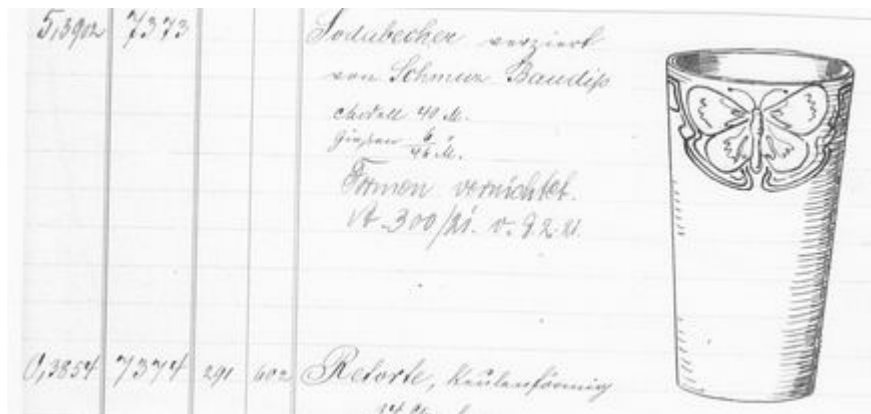 5,3902 7373 Sodabecher verziert
von Schmuz-Baudiß
Modell 40 M.
Gießen 6 "
46 M.
Formen vernichtet.
A. 300/21. v. 9.2.21.
0,3854 7374 291 602 Retorte, Keulenförmig